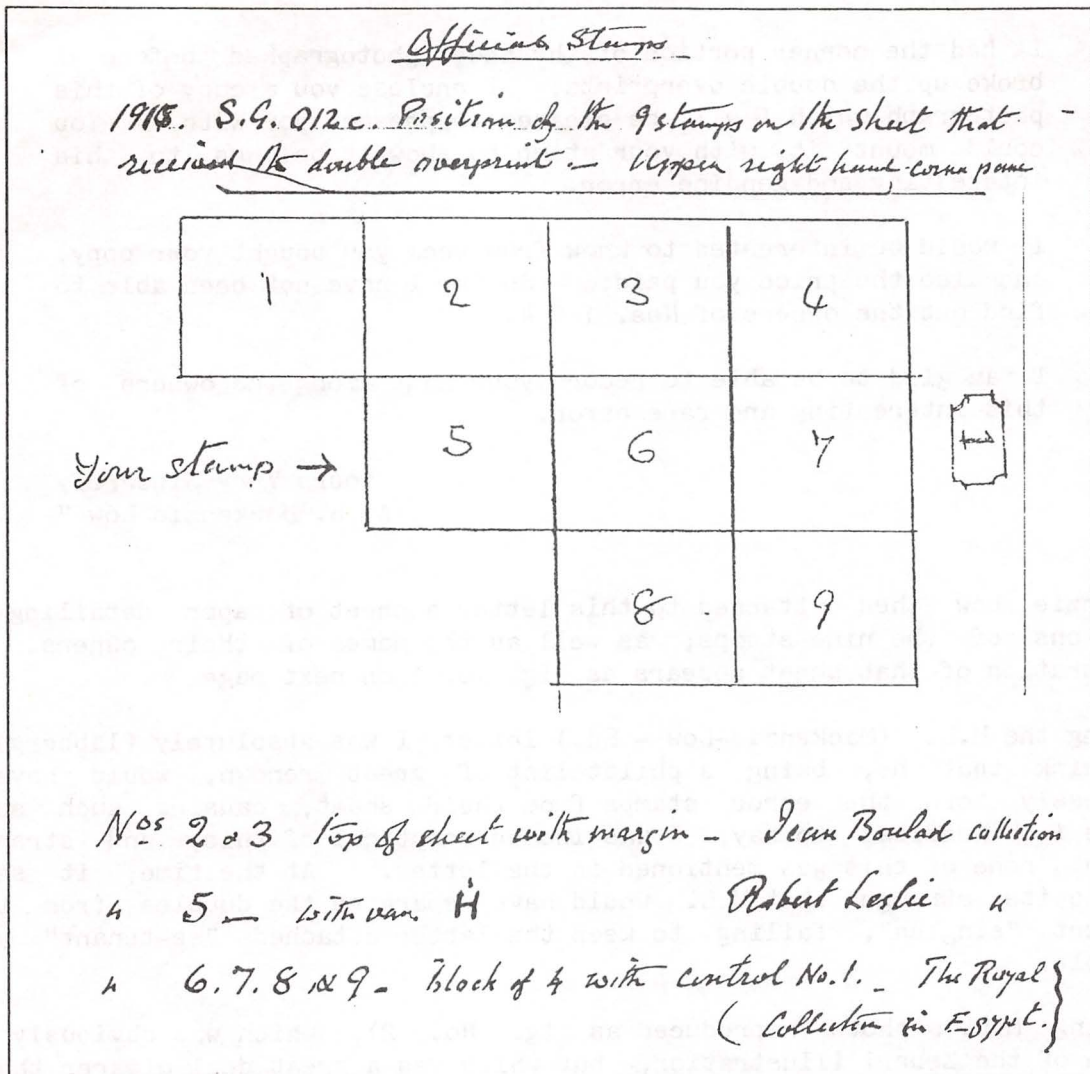 Official Stamps
1915 S.G. O12c. Position of the 9 stamps on the sheet that
received the double overprint. – Upper right hand corner pane
1 2 3 4
Your stamp → 5 6 7
8 9
Nos 2 & 3 top of sheet with margin – Jean Boulad collection
" 5 – with var. H Robert Leslie "
" 6.7.8 & 9 – block of 4 with control No. 1. – The Royal
Collection in Egypt.